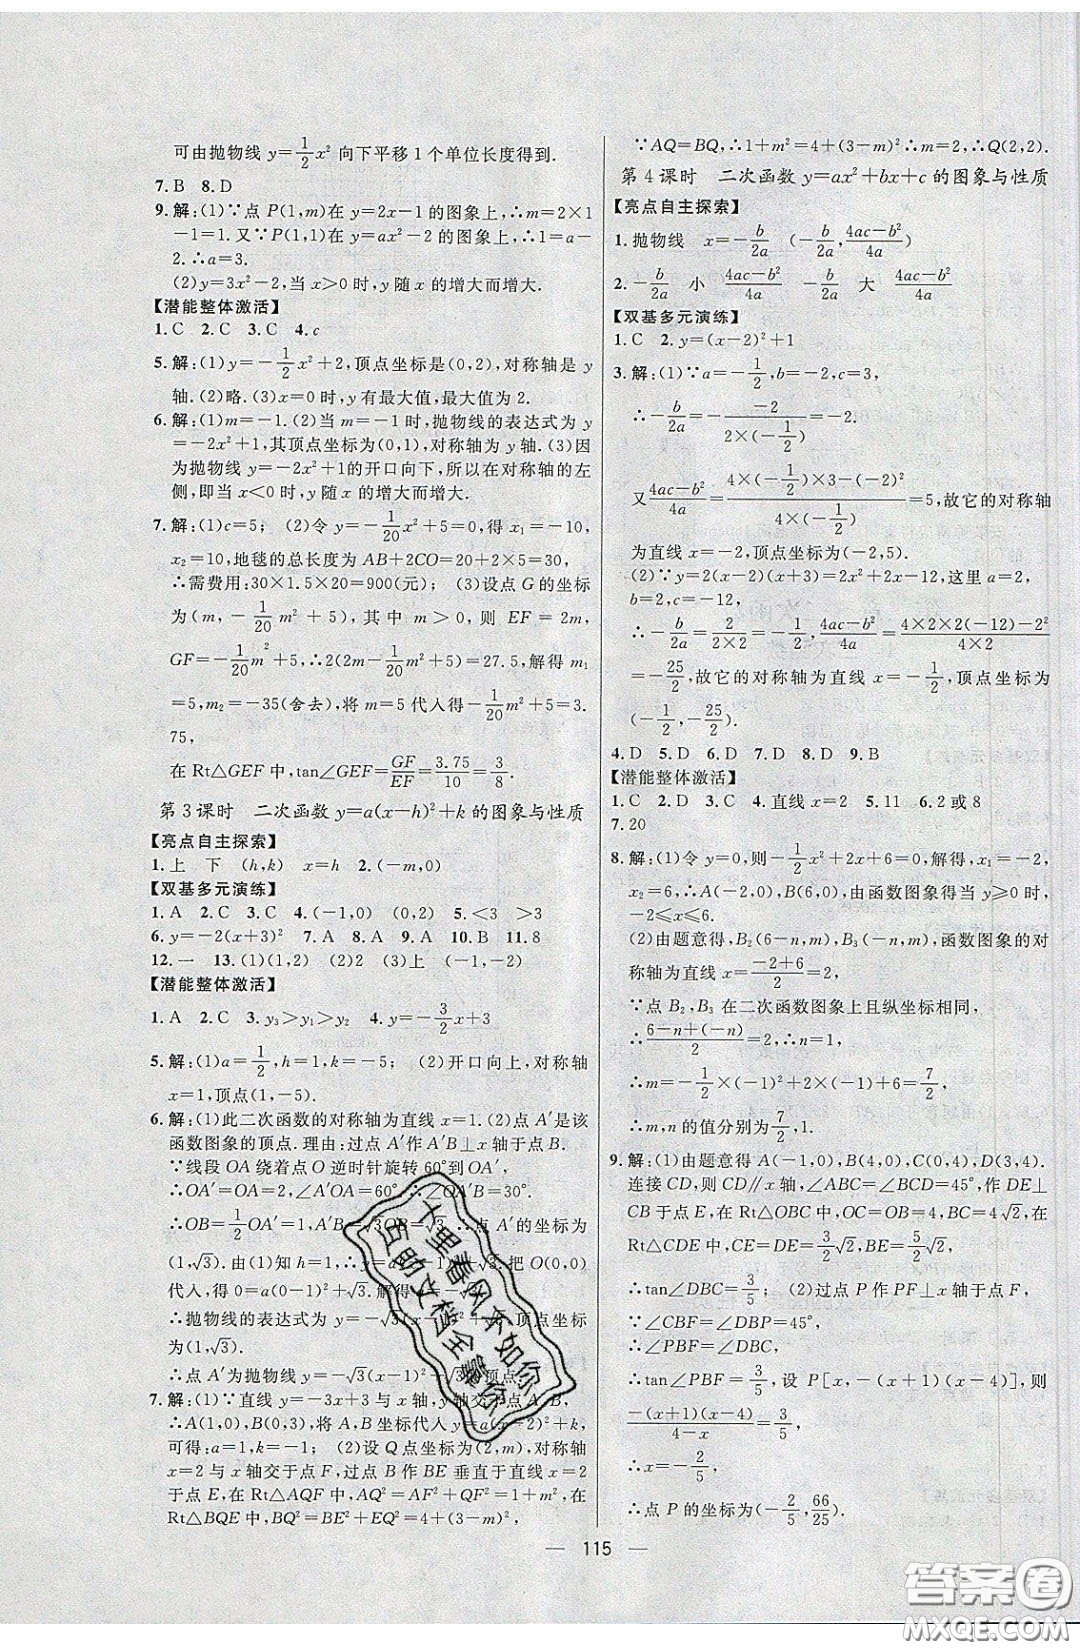 可由抛物线 y=1/2x² 向下平移 1 个单位长度得到.
7.B 8.D
9.解:(1)∵点 P(1,m)在 y=2x-1 的图象上,∴m=2×1
-1=1.又∵P(1,1)在 y=ax²-2 的图象上,∴1=a-
2.∴a=3.
(2)y=3x²-2,当 x>0 时,y 随 x 的增大而增大.
【潜能整体激活】
1.C 2.C 3.C 4.c
5.解:(1)y=-1/2x²+2,顶点坐标是(0,2),对称轴是 y
轴.(2)略.(3)x=0 时,y 有最大值,最大值为 2.
6.解:(1)m=-1.(2)当 m=-1 时,抛物线的表达式为 y
=-2x²+1,其顶点坐标为(0,1),对称轴为 y 轴.(3)因
为抛物线 y=-2x²+1的开口向下,所以在对称轴的左
侧,即当 x<0 时,y 随 x 的增大而增大.
7.解:(1)c=5; (2)令 y=-1/20x²+5=0,得 x₁=-10,
x₂=10,地毯的总长度为 AB+2CO=20+2×5=30,
∴需费用:30×1.5×20=900(元); (3)设点 G 的坐标
为(m,-1/20m²+5),其中 m>0,则 EF=2m,
GF=-1/20m²+5,∴2(2m-1/20m²+5)=27.5,解得 m₁
=5,m₂=-35(舍去),将 m=5 代入得-1/20m²+5=3.
75,
在 Rt△GEF 中,tan∠GEF=GF/EF=3.75/10=3/8.
第 3 课时 二次函数 y=a(x-h)²+k 的图象与性质
【亮点自主探索】
1.上 下 (h,k) x=h 2.(-m,0)
【双基多元演练】
1.A 2.C 3.C 4.(-1,0) (0,2) 5.<3 >3
6.y=-2(x+3)² 7.A 8.A 9.A 10.B 11.8
12.一 13.(1)(1,2) (2)2 (3)上 (-1,-2)
【潜能整体激活】
1.A 2.C 3.y₃>y₁>y₂ 4.y=-3/2x+3
5.解:(1)a=1/2,h=1,k=-5; (2)开口向上,对称轴
x=1,顶点(1,-5).
6.解:(1)此二次函数的对称轴为直线 x=1.(2)点 A′是该
函数图象的顶点.理由:过点 A′作 A′B⊥x 轴于点 B.
∵线段 OA 绕着点 O 逆时针旋转 60°到 OA′,
∴OA′=OA=2,∠A′OA=60°,∴∠OA′B=30°.
∴OB=1/2OA′=1,A′B=√3OB=√3,∴点 A′的坐标为
(1,√3),由(1)知 h=1,∴y=a(x-1)²+√3.把 O(0,0)
代入,得 0=a(0-1)²+√3.解得
∴抛物线的表达式为 y=-√3(x-1)²+√3,顶点坐标为
(1,√3).
∴点 A′为抛物线 y=-√3(x-1)²+√3的顶点.
7.解:(1)∵直线 y=-3x+3 与 x 轴,y 轴交于点 A,B,
∴A(1,0),B(0,3),将 A,B 坐标代入 y=a(x-2)²+k,
可得:a=1,k=-1; (2)设 Q点坐标为(2,m),对称轴
x=2 与 x轴交于点 F,过点 B 作 BE 垂直于直线 x=2
于点 E,在 Rt△AQF 中,AQ²=AF²+QF²=1+m²,在
Rt△BQE 中,BQ²=BE²+EQ²=4+(3-m)²,
∵AQ=BQ,∴1+m²=4+(3-m)²,∴m=2,∴Q(2,2).
第 4 课时 二次函数 y=ax²+bx+c 的图象与性质
【亮点自主探索】
1.抛物线 x=-b/2a (-b/2a,(4ac-b²)/4a)
2.-b/2a 小 (4ac-b²)/4a -b/2a 大 (4ac-b²)/4a
【双基多元演练】
1.C 2.y=(x-2)²+1
3.解:(1)∵a=-1/2,b=-2,c=3,
∴-b/2a=-(-2)/(2×(-1/2))=-2.
又(4ac-b²)/4a=(4×(-1/2)×3-(-2)²)/(4×(-1/2))=5,故它的对称轴
为直线 x=-2,顶点坐标为(-2,5).
(2)∵y=2(x-2)(x+3)=2x²+2x-12,这里 a=2,
b=2,c=-12,
∴-b/2a=-2/(2×2)=-1/2,(4ac-b²)/4a=(4×2×(-12)-2²)/(4×2)
=-25/2,故它的对称轴为直线 x=-1/2,顶点坐标为
(-1/2,-25/2).
4.D 5.D 6.D 7.D 8.D 9.B
【潜能整体激活】
1.C 2.D 3.C 4.直线 x=2 5.11 6.2 或 8
7.20
8.解:(1)令 y=0,则-1/2x²+2x+6=0,解得,x₁=-2,
x₂=6,∴A(-2,0),B(6,0),由函数图象得当 y≥0 时,
-2≤x≤6.
(2)由题意得,B₂(6-n,m),B₃(-n,m),函数图象的对
称轴为直线 x=(-2+6)/2=2,
∵点 B₂,B₃ 在二次函数图象上且纵坐标相同,
∴(6-n+(-n))/2=2,∴n=1,
∴m=-1/2×(-1)²+2×(-1)+6=7/2,
∴m,n 的值分别为7/2,1.
9.解:(1)由题意得 A(-1,0),B(4,0),C(0,4),D(3,4).
连接 CD,则 CD∥x 轴,∠ABC=∠BCD=45°,作 DE⊥
CB 于点 E,在 Rt△OBC 中,OC=OB=4,BC=4√2,在
Rt△CDE 中,CD=3,CE=DE=3/2√2,BE=5/2√2,
∴tan∠DBC=3/5; (2)过点 P 作 PF⊥x 轴于点 F,
∵∠CBF=∠DBP=45°,
∴∠PBF=∠DBC,
∴tan∠PBF=3/5,设 P[x,-(x+1)(x-4)],则
-(x+1)(x-4)/(4-x)=3/5,
∴x=-2/5,
∴点 P 的坐标为(-2/5,66/25).
— 115 —
答案圈
MXQE.COM